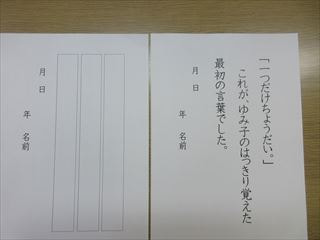 「一つだけちょうだい。」
これが、ゆみ子のはっきり覚えた
最初の言葉でした。
月 日
年 名前
月 日
年 名前